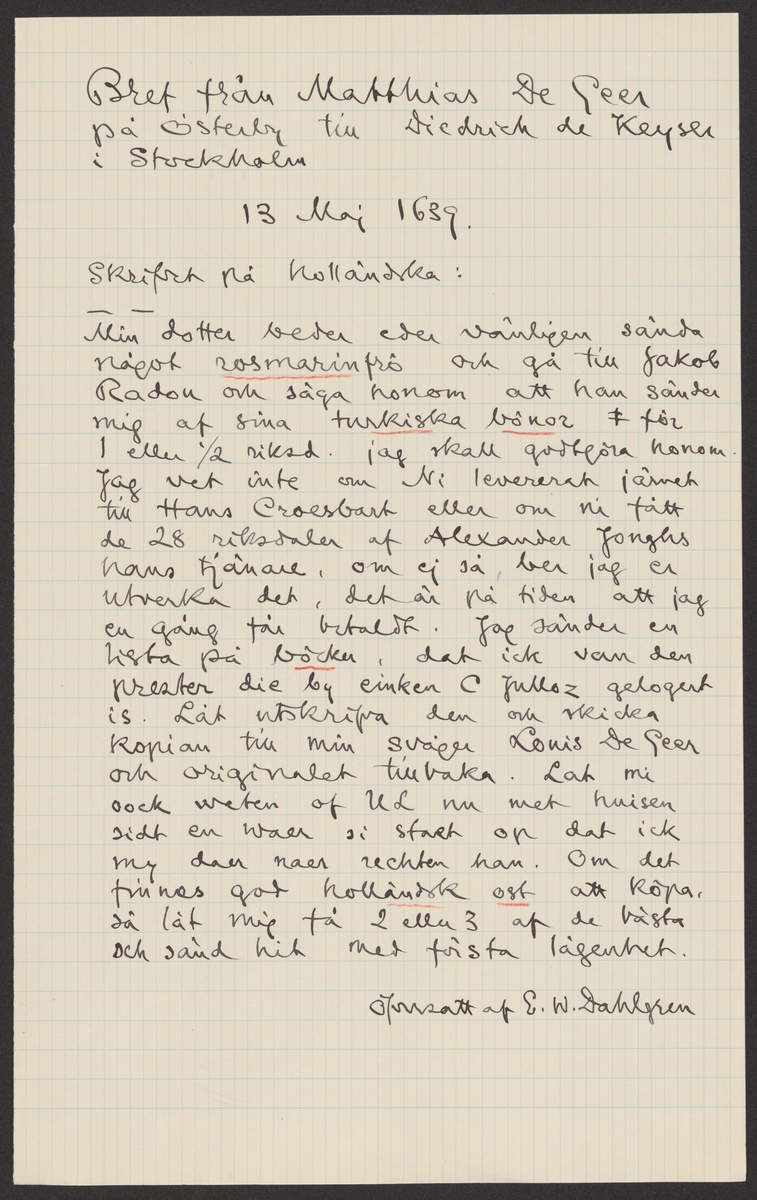 Bref från Matthias De Geer
på Österby till Diedrich de Keyser
i Stockholm
13 Maj 1639.
Skrifvet på holländska:
Min dotter beder eder vänligen sända
något rosmarinfrö och gå till Jakob
Radou och säga honom att han sänder
mig af sina turkiska bönor för
1 eller 1/2 riksd. jag skall godtgöra honom.
Jag vet inte om Ni levererat järnet
till Hans Croesbart eller om ni fått
de 28 riksdaler af Alexander Jonghs
hans tjänare, om ej så, ber jag er
utverka det, det är på tiden att jag
en gång får betaldt. Jag sänder en
lista på böcker, dat ick van den
prester die by einken C gelogert
is. Låt utskrifva den och skicka
kopian till min svåger Louis De Geer
och originalet tillbaka. Lat mi
oock weten of UL nu met huisen
sidt en waer si staet op dat ick
my daer naer rechten kan. Om det
finnes god holländsk ost att köpa,
så låt mig få 2 eller 3 af de bästa
och sänd hit med första lägenhet.
Öfversatt af E. W. Dahlgren